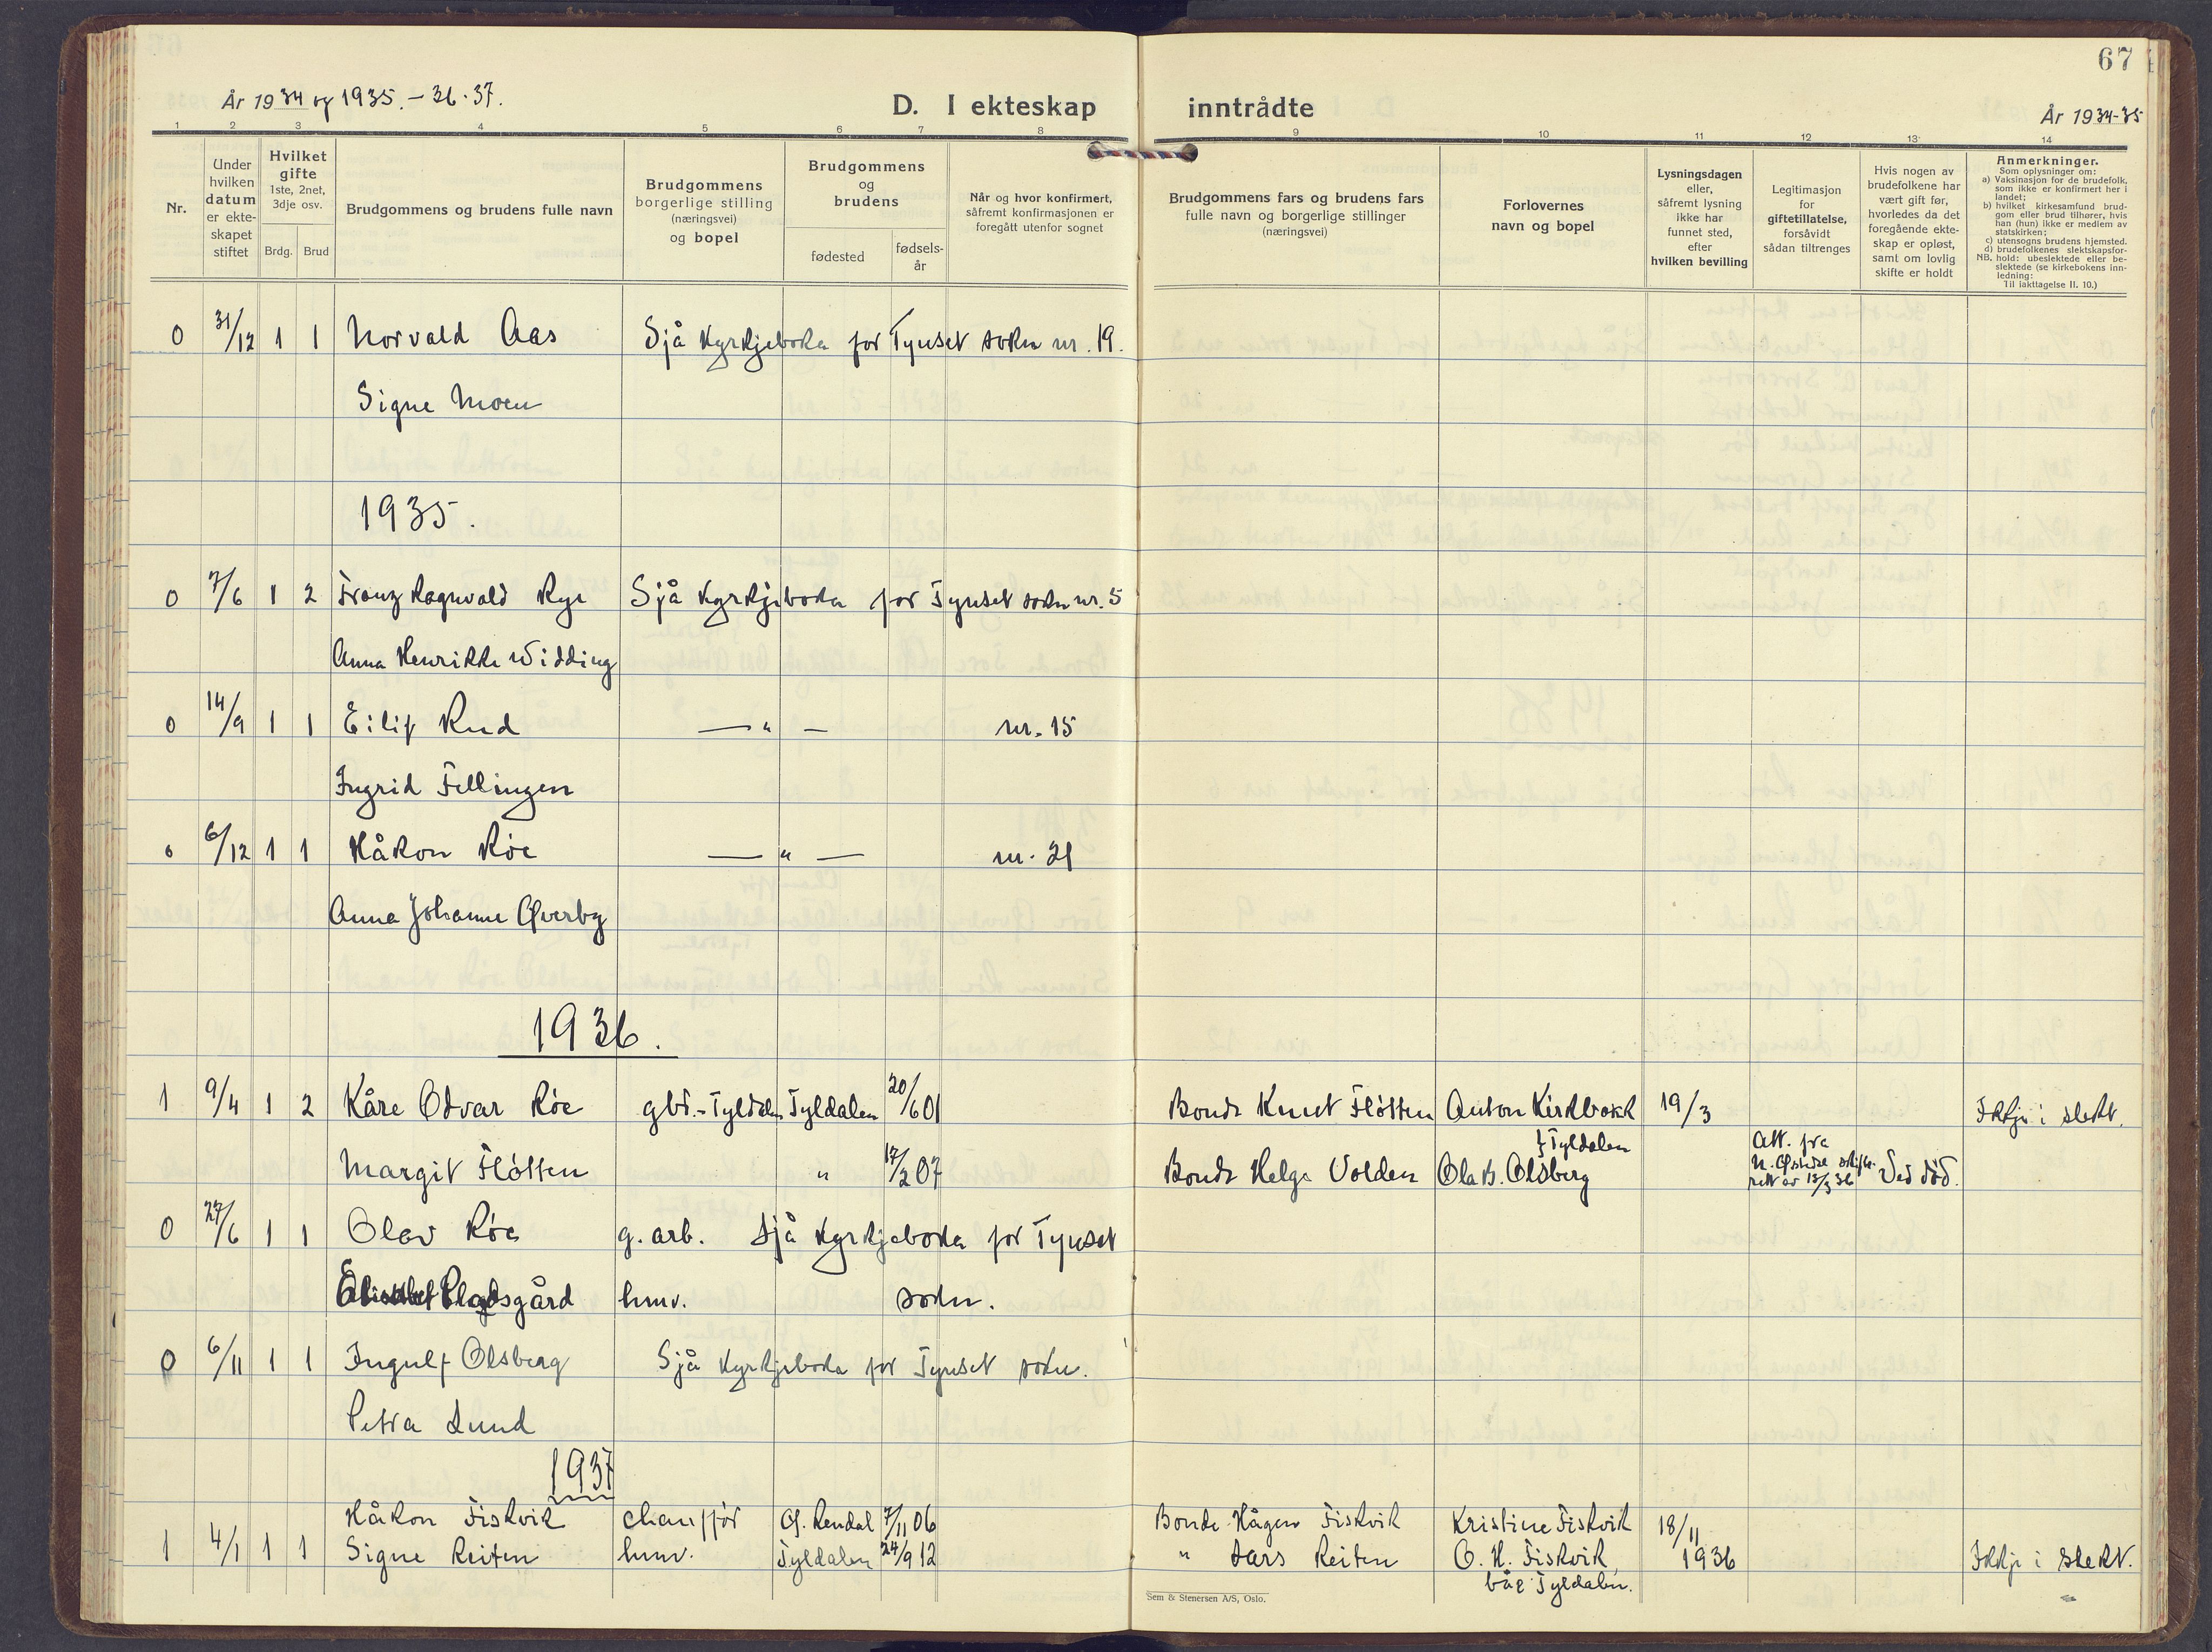 67
År 1934 og 1935. - 36. 37.
D. I ekteskap inntrådte
År 1934-35
1 2 3 4 5 6 7 8 9 10 11 12 13 14
Nr.
Under hvilken datum er ekte-skapet stiftet
Hvilket gifte
1ste, 2net, 3dje osv.
Brdg. Brud
Brudgommens og brudens fulle navn
Brudgommens borgerlige stilling (næringsvei) og bopel
Brudgommens og brudens
fødested
fødsels-år
Når og hvor konfirmert, såfremt konfirmasjonen er foregått utenfor sognet
Brudgommens fars og brudens fars fulle navn og borgerlige stillinger (næringsvei)
Forlovernes navn og bopel
Lysningsdagen eller, såfremt lysning ikke har funnet sted, efter hvilken bevilling
Legitimasjon for giftetillatelse, forsåvidt sådan tiltrenges
Hvis nogen av brudefolkene har vært gift før, hvorledes da det foregående ekte-skap er opløst, samt om lovlig skifte er holdt
Anmerkninger.
Som oplysninger om:
a) Vaksinasjon for de brudefolk, som ikke er konfirmert her i landet;
b) hvilket kirkesamfund brud-gom eller brud tilhører, hvis han (hun) ikke er medlem av statskirken;
c) utensogns brudens hjemsted.
d) brudefolkenes slektskapsfor-hold: ubeslektede eller be-slektede (se kirkebokens inn-ledning:
NB.
Til iakttagelse II. 10.)
0 31/12 1 1 Norvald Aas Sjå Kyrkjeboka for Tynset sokn nr. 19.
Signe Moen
1935.
0 7/6 1 2 Franz Ragnvald Rye Sjå Kyrkjeboka for Tynset sokn nr. 5
Anna Henrikke Widding
0 14/9 1 1 Eilif Rud — " — nr. 15
Ingrid Fellingen
0 6/12 1 1 Håkon Röe — " — nr. 21
Anna Johanne Øverby
1936.
1 9/4 1 2 Kåre Odvar Röe gbr. - Tyldalen Tyldalen 20/6 01 Bonde Knut Flótten Anton Kirkbakk 19/3 Ikkje i slekt.
} Tyldalen
Margit Flótten " 17/2 07 Bonde Helge Volden Ola B. Olsberg Att. fra N. Østerdal skifte-rett av 18/3 36 Ved död.
0 27/6 1 1 Olav Röe g. arb. Sjå Kyrkjeboka for Tynset
hmv. sokn.
0 6/11 1 1 Ingulf Olsberg Sjå Kyrkjeboka for Tynset sokn.
Petra Lund
1937
Håkon Fiskvik chauffór Ø. Rendal 7/11 06 Bonde Hågen Fiskvik Kristine Fiskvik 18/11
1 4/1 1 1 Signe Reiten hmv. Tyldalen 24/9 12 " Lars Reiten O. H. Fiskvik 1936 Ikkje i slekt.
båe Tyldalen.
Sem & Stenersen A/S, Oslo.